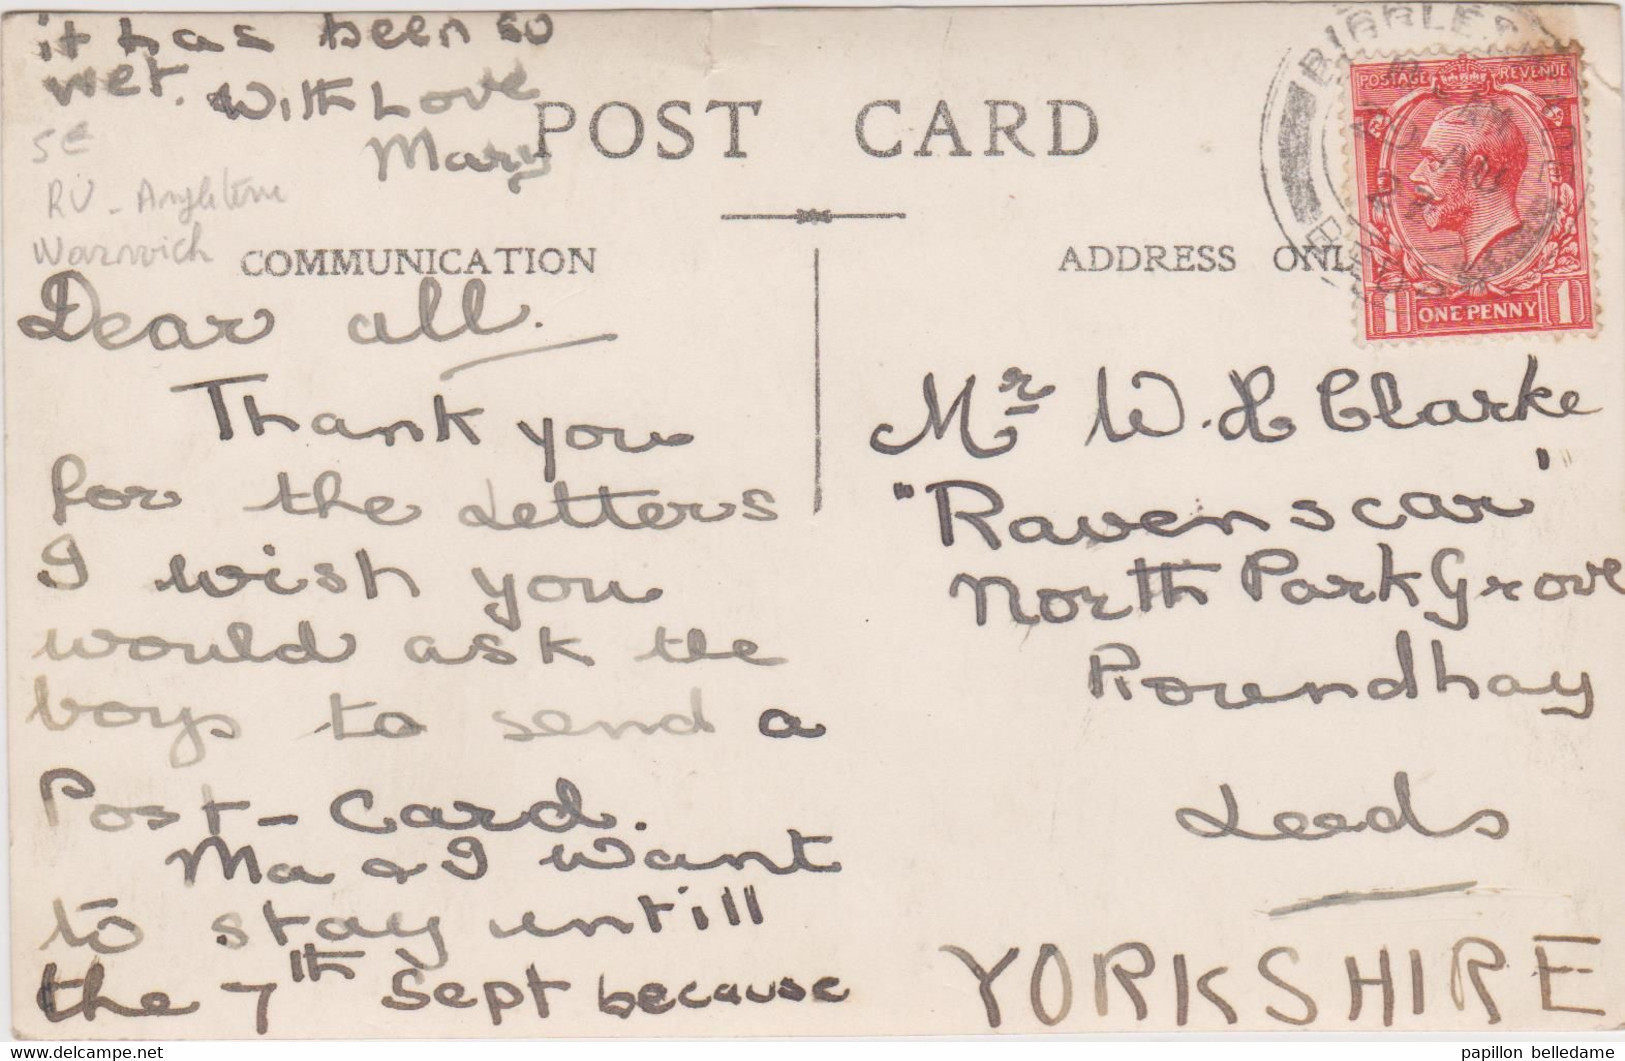 it has been so
wet. With Love
Mary
5€
RU - Angleterre
Warwich
POST CARD
COMMUNICATION
ADDRESS ONL
POSTAGE REVENUE
1 ONE PENNY 1
Dear all.
Thank you
for the Letters
I wish you
would ask the
boys to send a
Post-Card.
Ma & I want
to stay untill
the 7th Sept because
Mr W. H Clarke
"Ravenscar"
North Park Grove
Roundhay
Leeds
YORKSHIRE
papillon belledame
https://www.delcampe.net